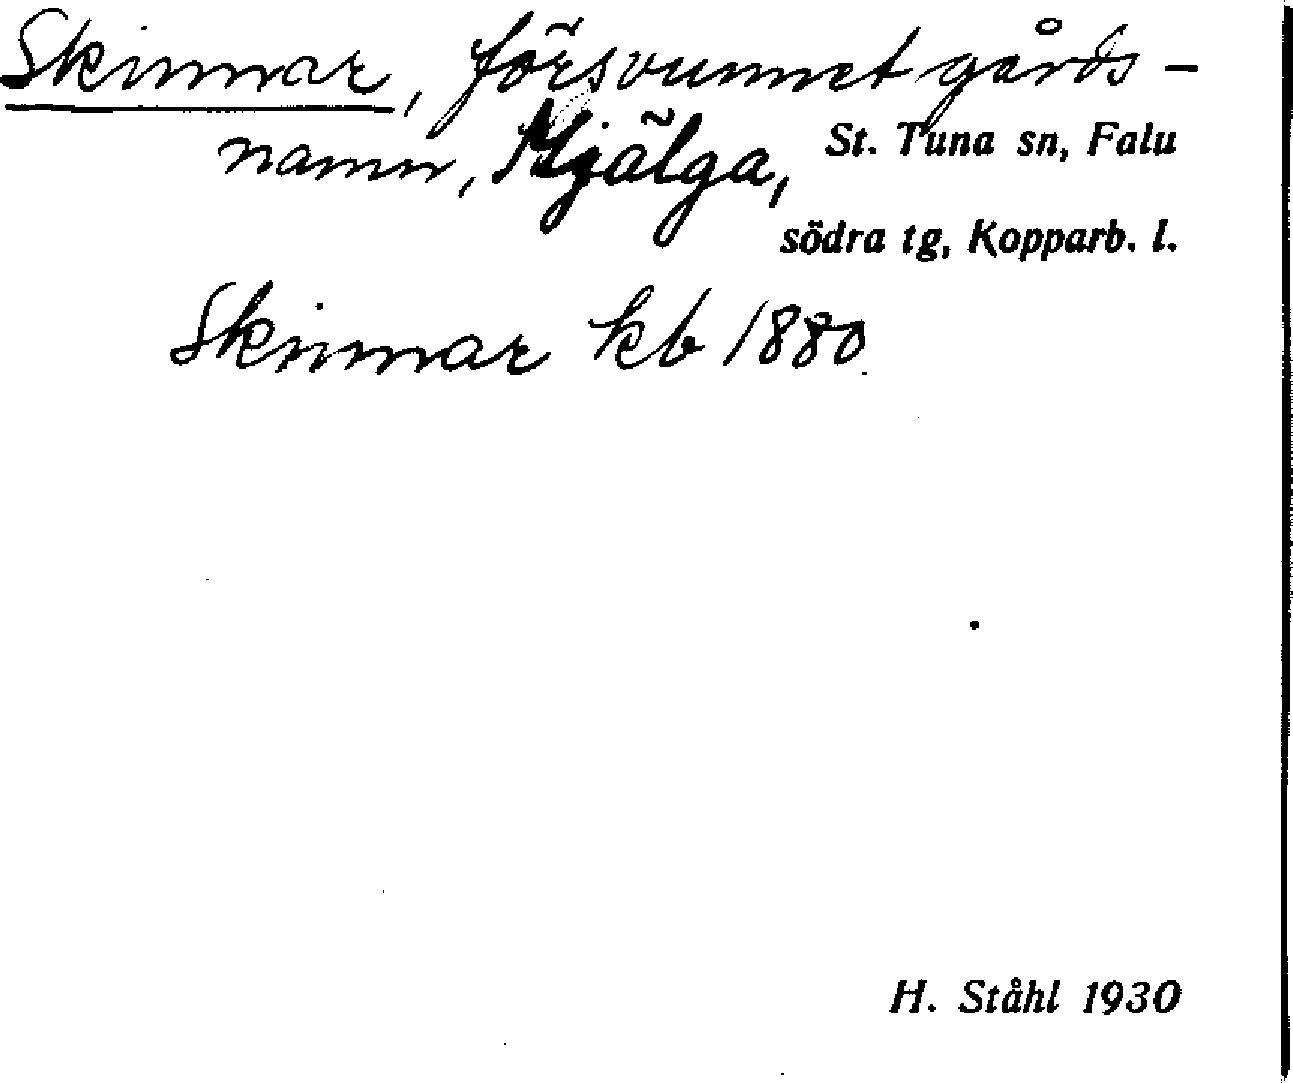 Skinnar, försvunnet gårds-
namn, Mjälga,
St. Tuna sn, Falu
södra tg, Kopparb. l.
Skinnar kb 1880
H. Ståhl 1930